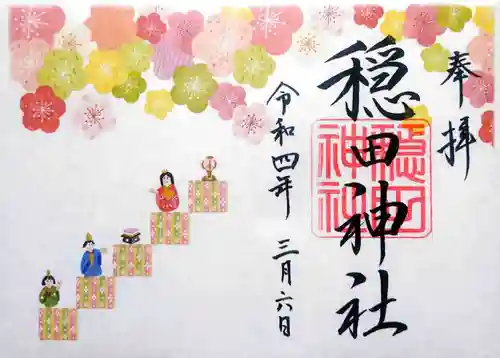 奉拝
穏田神社
穏田神社
令和四年 三月六日